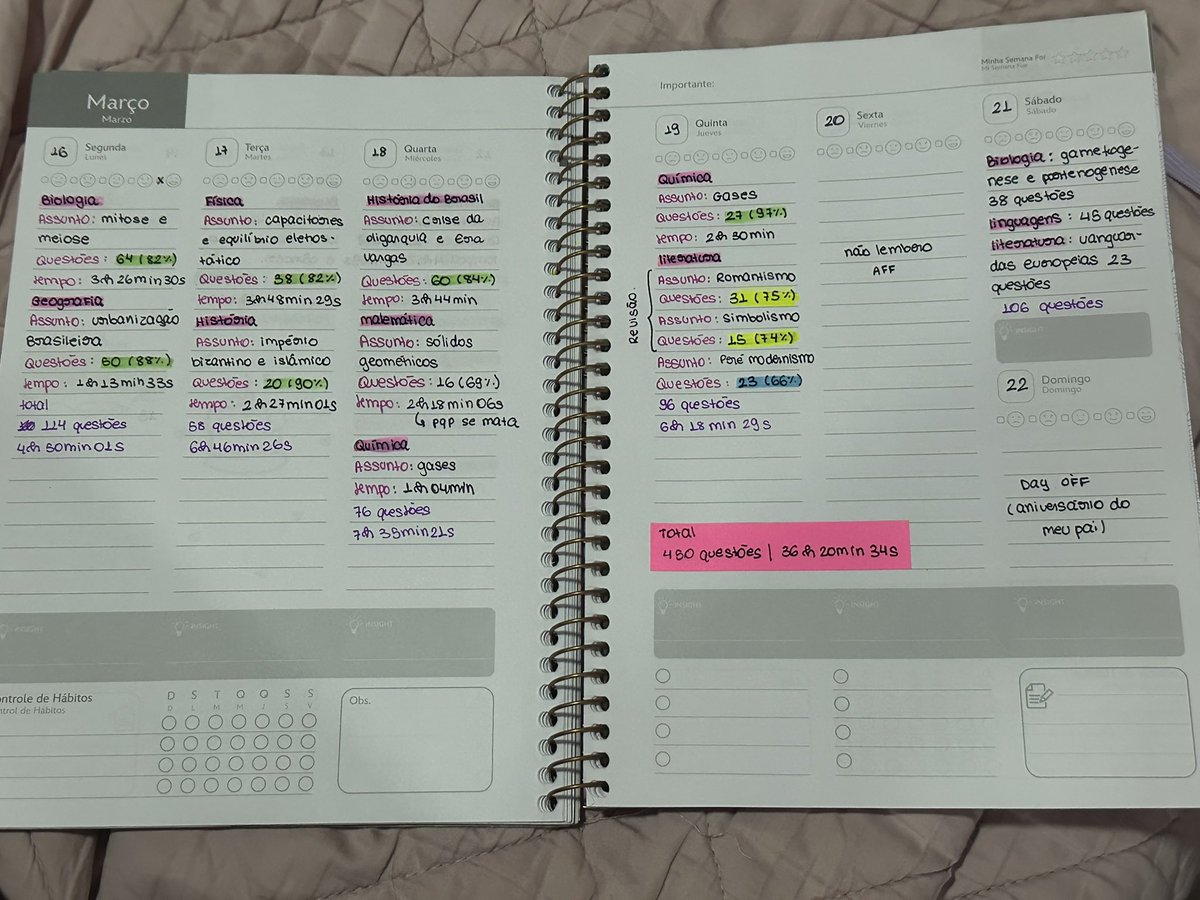 Março
Marzo
16 Segunda
Lunes
Biologia
Assunto: mitose e
meiose
Questões: 64 (82%)
tempo: 3h26min30s
Geografia
Assunto: urbanização
Brasileira
Questões: 50 (88%)
tempo: 1h13min33s
total
114 questões
4h50min01s
17 Terça
Martes
Física
Assunto: capacitores
e equilíbrio eletros-
tático
Questões: 38 (82%)
tempo: 3h48min29s
História
Assunto: império
bizantino e islâmico
Questões: 20 (90%)
tempo: 2h27min01s
58 questões
6h46min26s
18 Quarta
Miércoles
História do Brasil
Assunto: crise da
oligarquia e Era
vargas
Questões: 60 (84%)
tempo: 3h44min
matemática
Assunto: sólidos
geométricos
Questões: 16 (69%)
tempo: 2h18min06s
↳ pqp se mata
Química
Assunto: gases
tempo: 1h04min
76 questões
7h35min21s
INSIGHT
INSIGHT
INSIGHT
ontrole de Hábitos
ntrol de Hábitos
D S T Q Q S S
D L M M J S V
Obs.
Importante:
Minha Semana Foi
Mi Semana Fue
19 Quinta
Jueves
Química
Assunto: Gases
Questões: 27 (97%)
tempo: 2h30min
literatura
Revisão.
Assunto: Romantismo
Questões: 31 (75%)
Assunto: Simbolismo
Questões: 15 (74%)
Assunto: Pré modernismo
Questões: 23 (66%)
96 questões
6h18min 29s
20 Sexta
Viernes
não lembro
AFF
21 Sábado
Sábado
Biologia: gametoge-
nese e partenogenese
38 questões
linguagens: 45 questões
literatura: vanguar-
das europeias 23
questões
106 questões
INSIGHT
22 Domingo
Domingo
Day OFF
(aniversário do
meu pai)
Total
450 questões | 36h20min 34s
INSIGHT
INSIGHT
INSIGHT